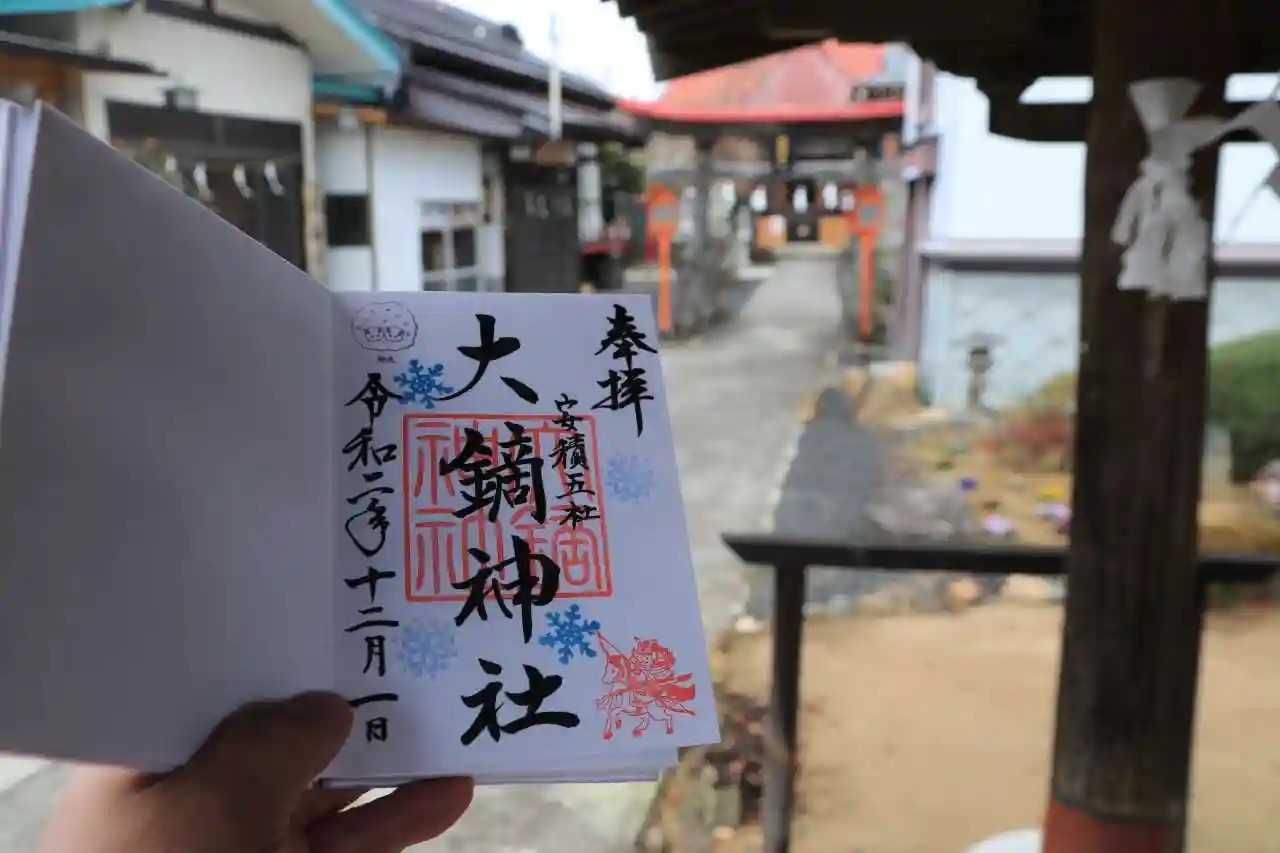 奉拝
安積五社
大鏑神社
令和二年十二月一日